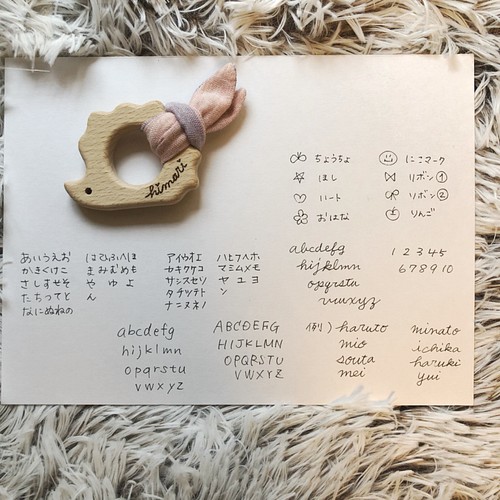 himari
ちょうちょ
ほし
ハート
おはな
にこマーク
リボン①
リボン②
りんご
あいうえお
かきくけこ
さしすせそ
たちつてと
なにぬねの
はひふへほ
まみむめも
や ゆ よ
ん
アイウオエ
カキクケコ
サシスセソ
タチツテト
ナニヌネノ
ハヒフヘホ
マミムメモ
ヤ ユ ヨ
ン
abcdefg
hijklmn
opqrstu
vwxyz
1 2 3 4 5
6 7 8 9 10
abcdefg
hijklmn
opqrstu
vwxyz
ABCDEFG
HIJKLMN
OPQRSTU
VWXYZ
例）haruto
mio
souta
mei
minato
ichika
haruki
yui